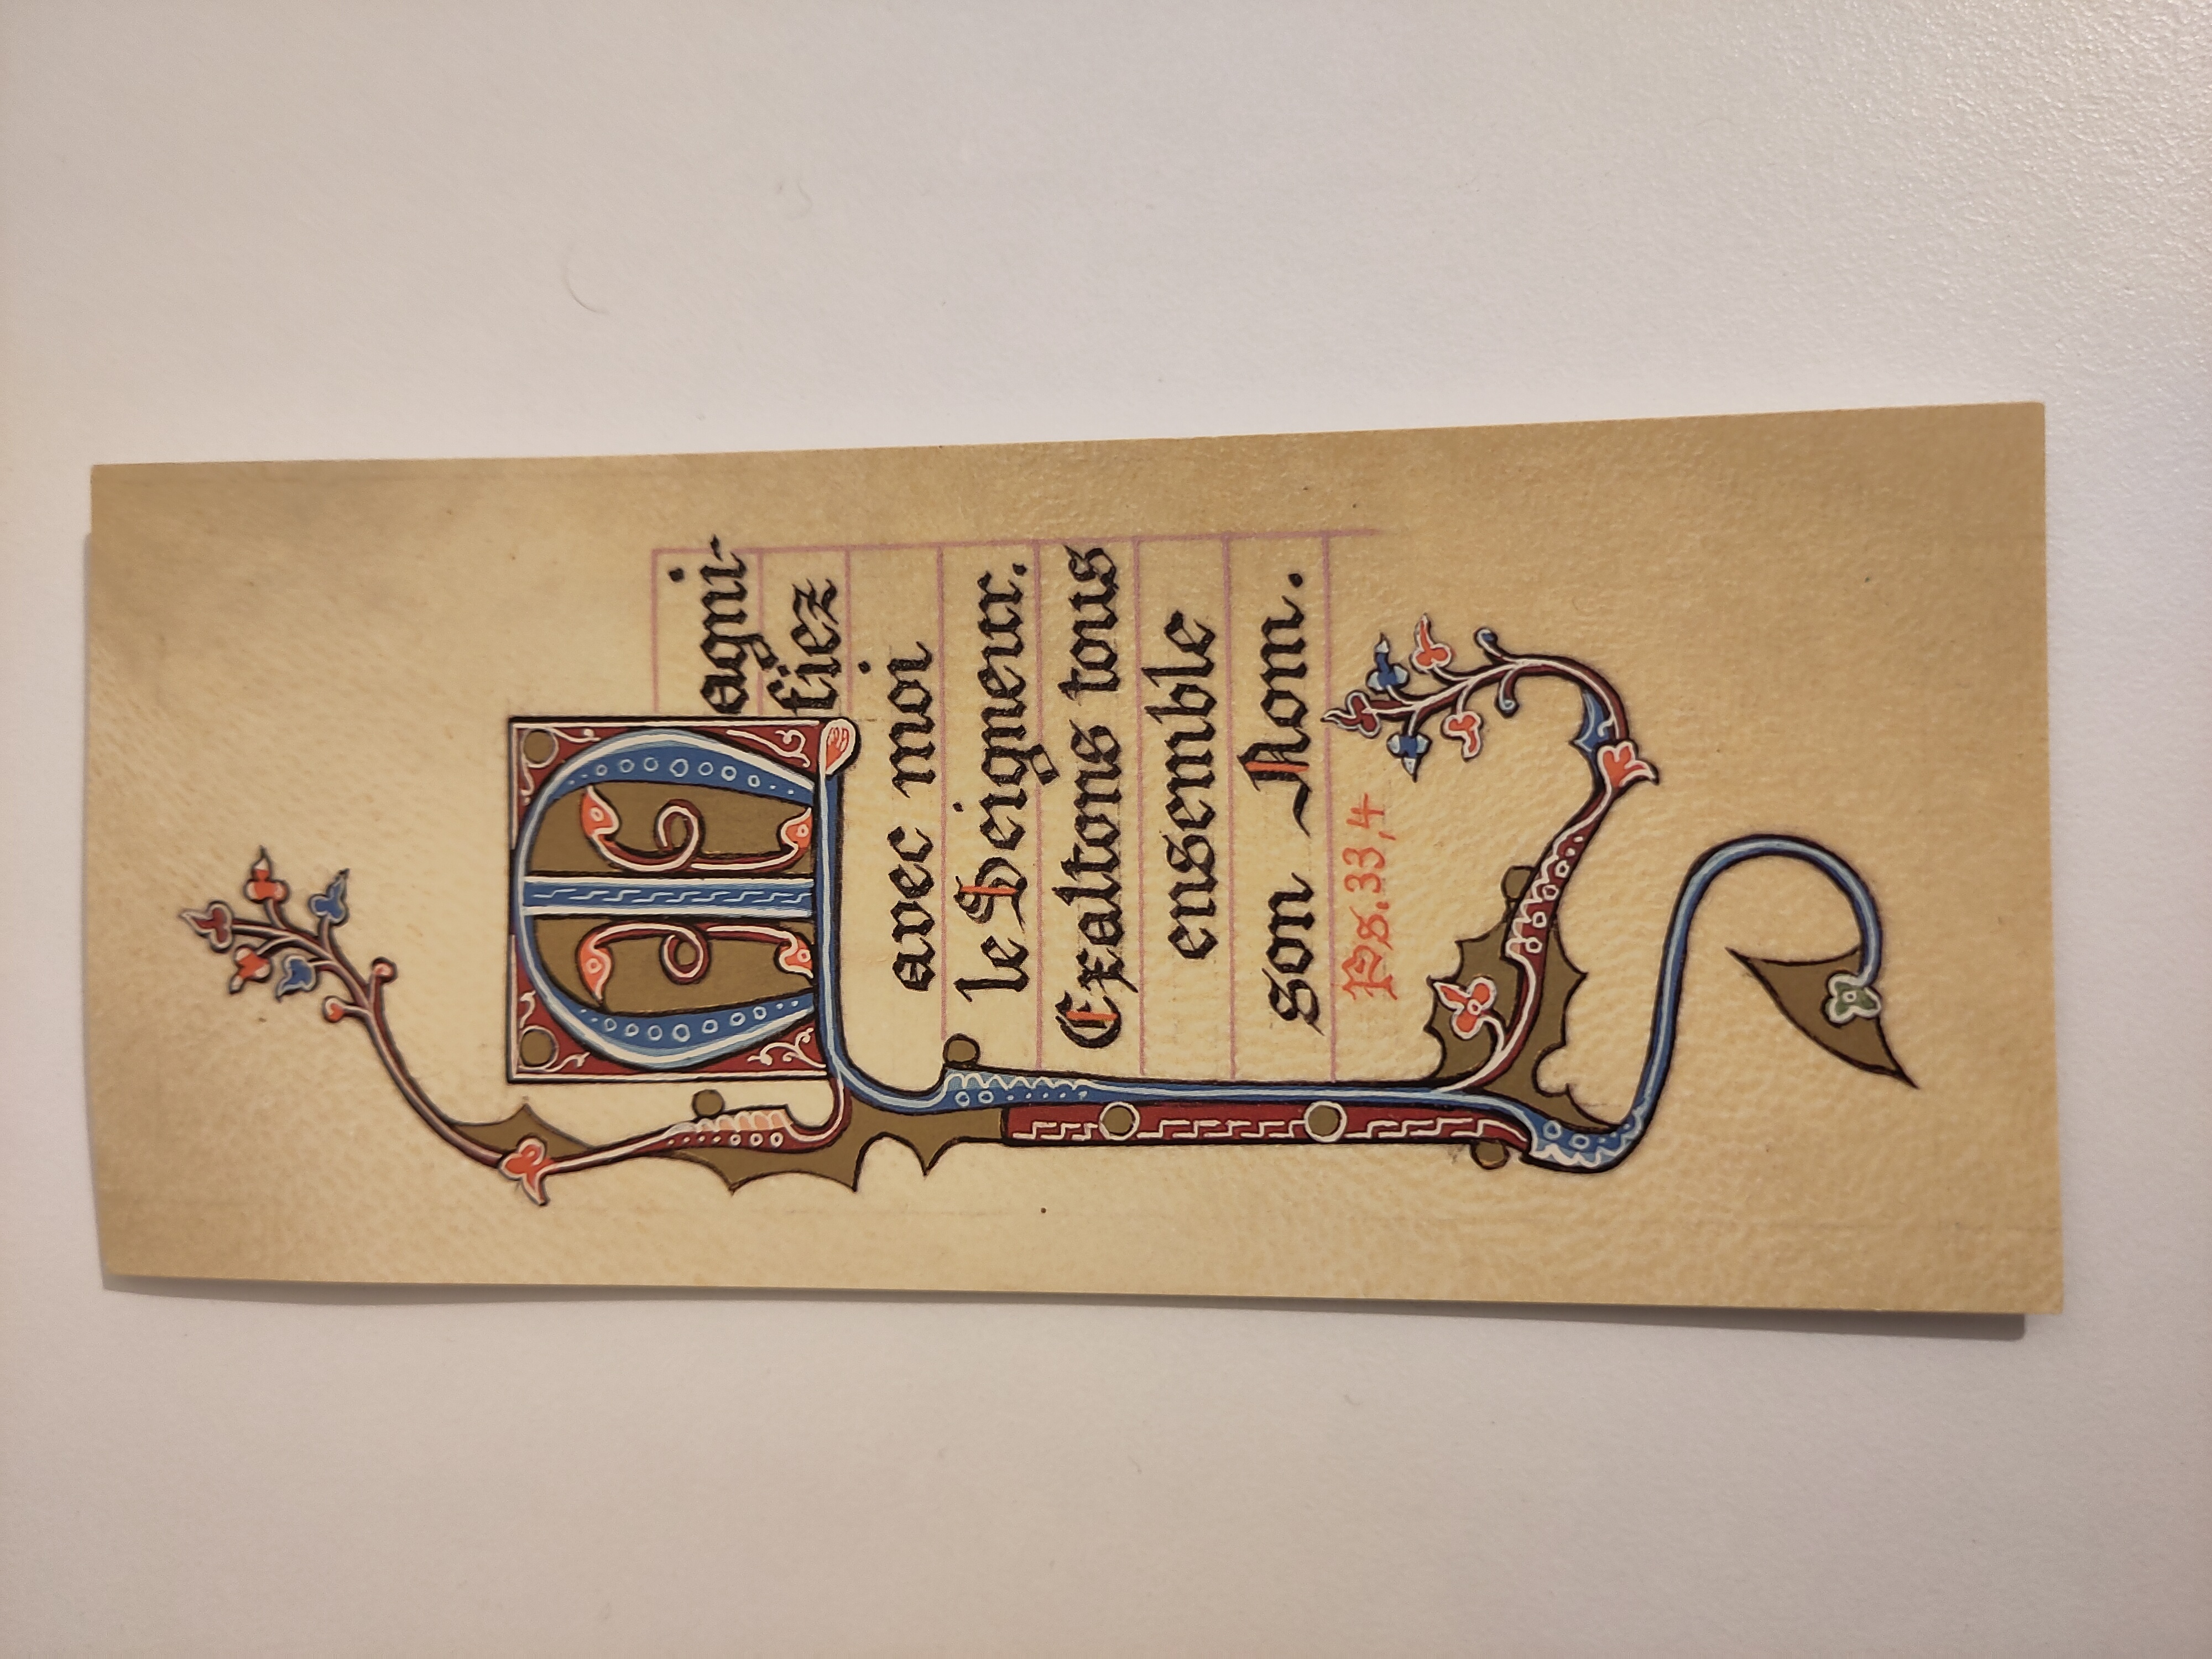 Magni-
fiez
avec moi
le Seigneur.
Exaltons tous
ensemble
son Nom.
Ps. 33,4